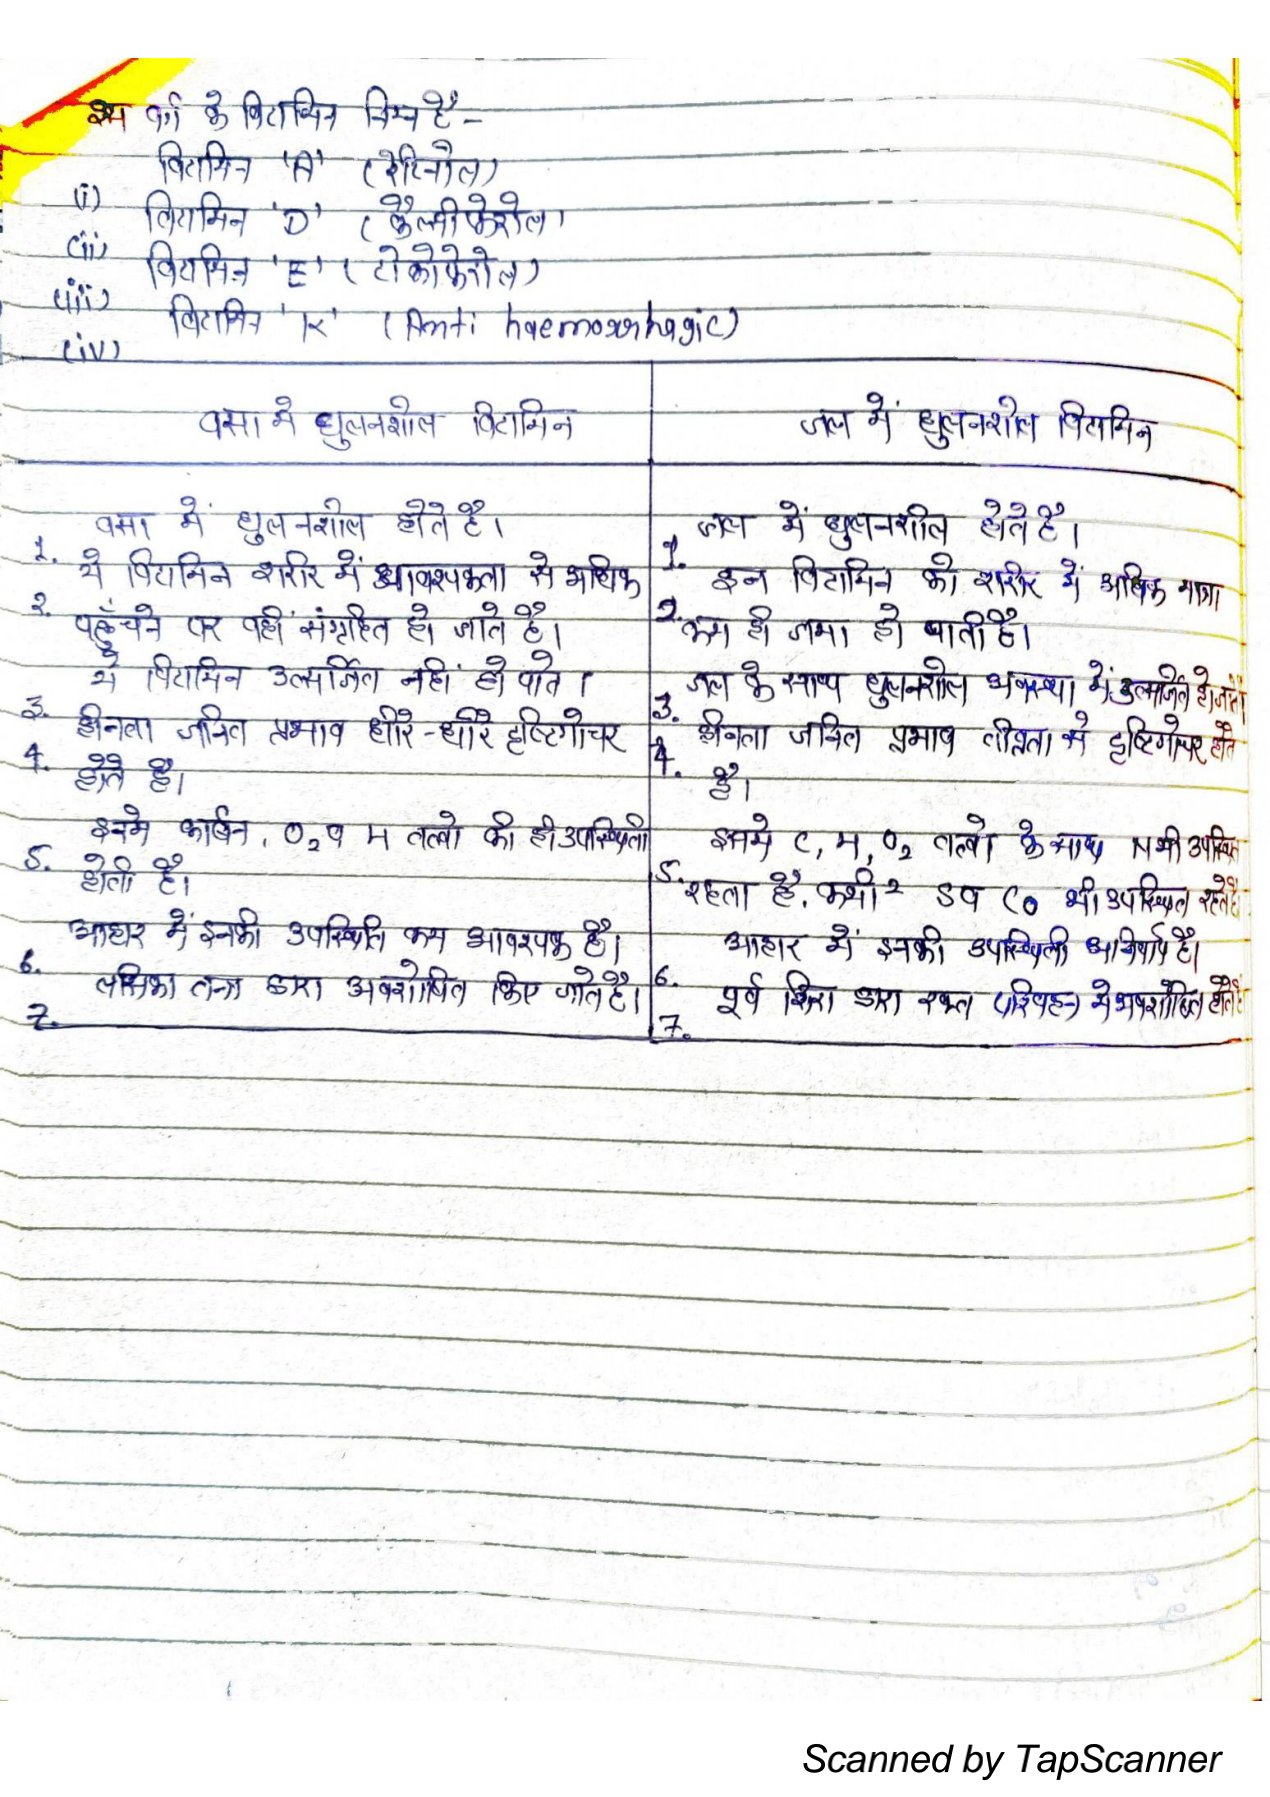 इस वर्ग के विटामिन निम्न है -
(i) विटामिन 'A' (रेटिनोल)
(ii) विटामिन 'D' (कैल्सीफेरोल)
(iii) विटामिन 'E' (टोकोफेरोल)
(iv) विटामिन 'K' (Anti haemorrhagic)
वसा मे घुलनशील विटामिन
जल में घुलनशील विटामिन
1. वसा में घुलनशील होते है।
2. ये विटामिन शरीर में आवश्यकता से अधिक
पहुँचने पर वहीं संग्रहित हो जाते है।
3. ये विटामिन उत्सर्जित नहीं हो पाते।
4. हीनता जनित प्रभाव धीरे-धीरे दृष्टिगोचर
होते है।
5. इनमे कार्बन, O2 व H तत्वो की ही उपस्थिती
होती है।
6. आहार में इनकी उपस्थिति कम आवश्यक है।
7. लसिका तन्त्र द्वारा अवशोषित किए जाते है।
1. जल में घुलनशील होते है।
2. इन विटामिन को शरीर में अधिक मात्रा
कम ही जमा हो पाती है।
3. जल के साथ घुलनशील अवस्था में उत्सर्जित हो जाते
4. हीनता जनित प्रभाव तीव्रता से दृष्टिगोचर होते
है।
5. इसमे C, H, O2 तत्वो के साथ N भी उपस्थित
रहता है. कभी2 S व CO भी उपस्थित रहते है।
6. आहार में इनकी उपस्थिती अनिर्वाय है।
7. पूर्व शिरा द्वारा रक्त परिवहन मे अवशोषित होते है
Scanned by TapScanner